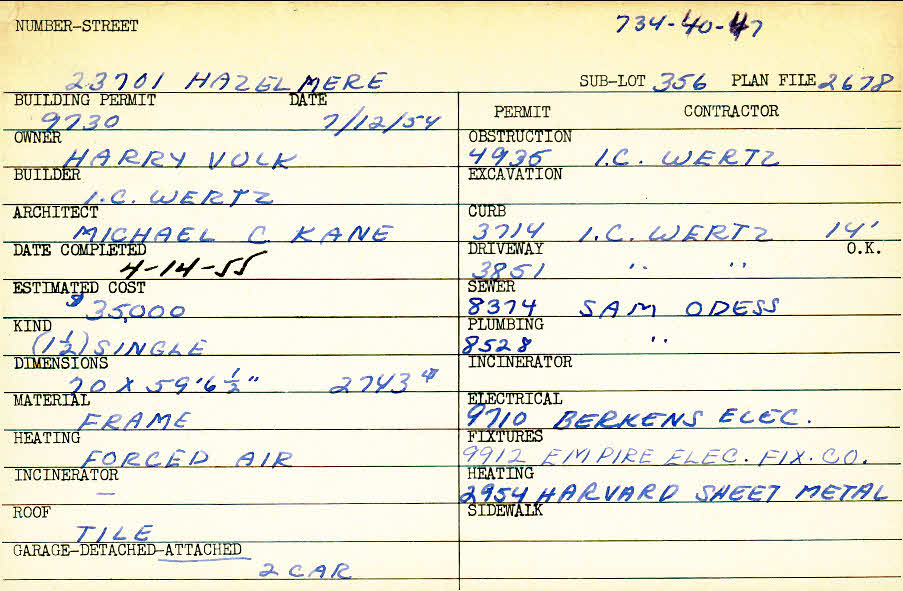 NUMBER-STREET 734-40-47
23701 HAZELMERE SUB-LOT 356 PLAN FILE 2678
BUILDING PERMIT DATE
9730 7/12/54
OWNER
HARRY VOLK
BUILDER
I.C. WERTZ
ARCHITECT
MICHAEL C KANE
DATE COMPLETED
4-14-55
ESTIMATED COST
$35,000
KIND
(1½) SINGLE
DIMENSIONS
70 X 59'6½" 2743 #
MATERIAL
FRAME
HEATING
FORCED AIR
INCINERATOR
—
ROOF
TILE
GARAGE-DETACHED-ATTACHED
2 CAR
PERMIT CONTRACTOR
OBSTRUCTION
4935 I.C. WERTZ
EXCAVATION
CURB
3714 I.C. WERTZ 14'
DRIVEWAY O.K.
3851 " "
SEWER
8374 SAM ODESS
PLUMBING
8528 "
INCINERATOR
ELECTRICAL
9710 BERKENS ELEC.
FIXTURES
9912 EMPIRE ELEC. FIX. CO.
HEATING
2954 HARVARD SHEET METAL
SIDEWALK